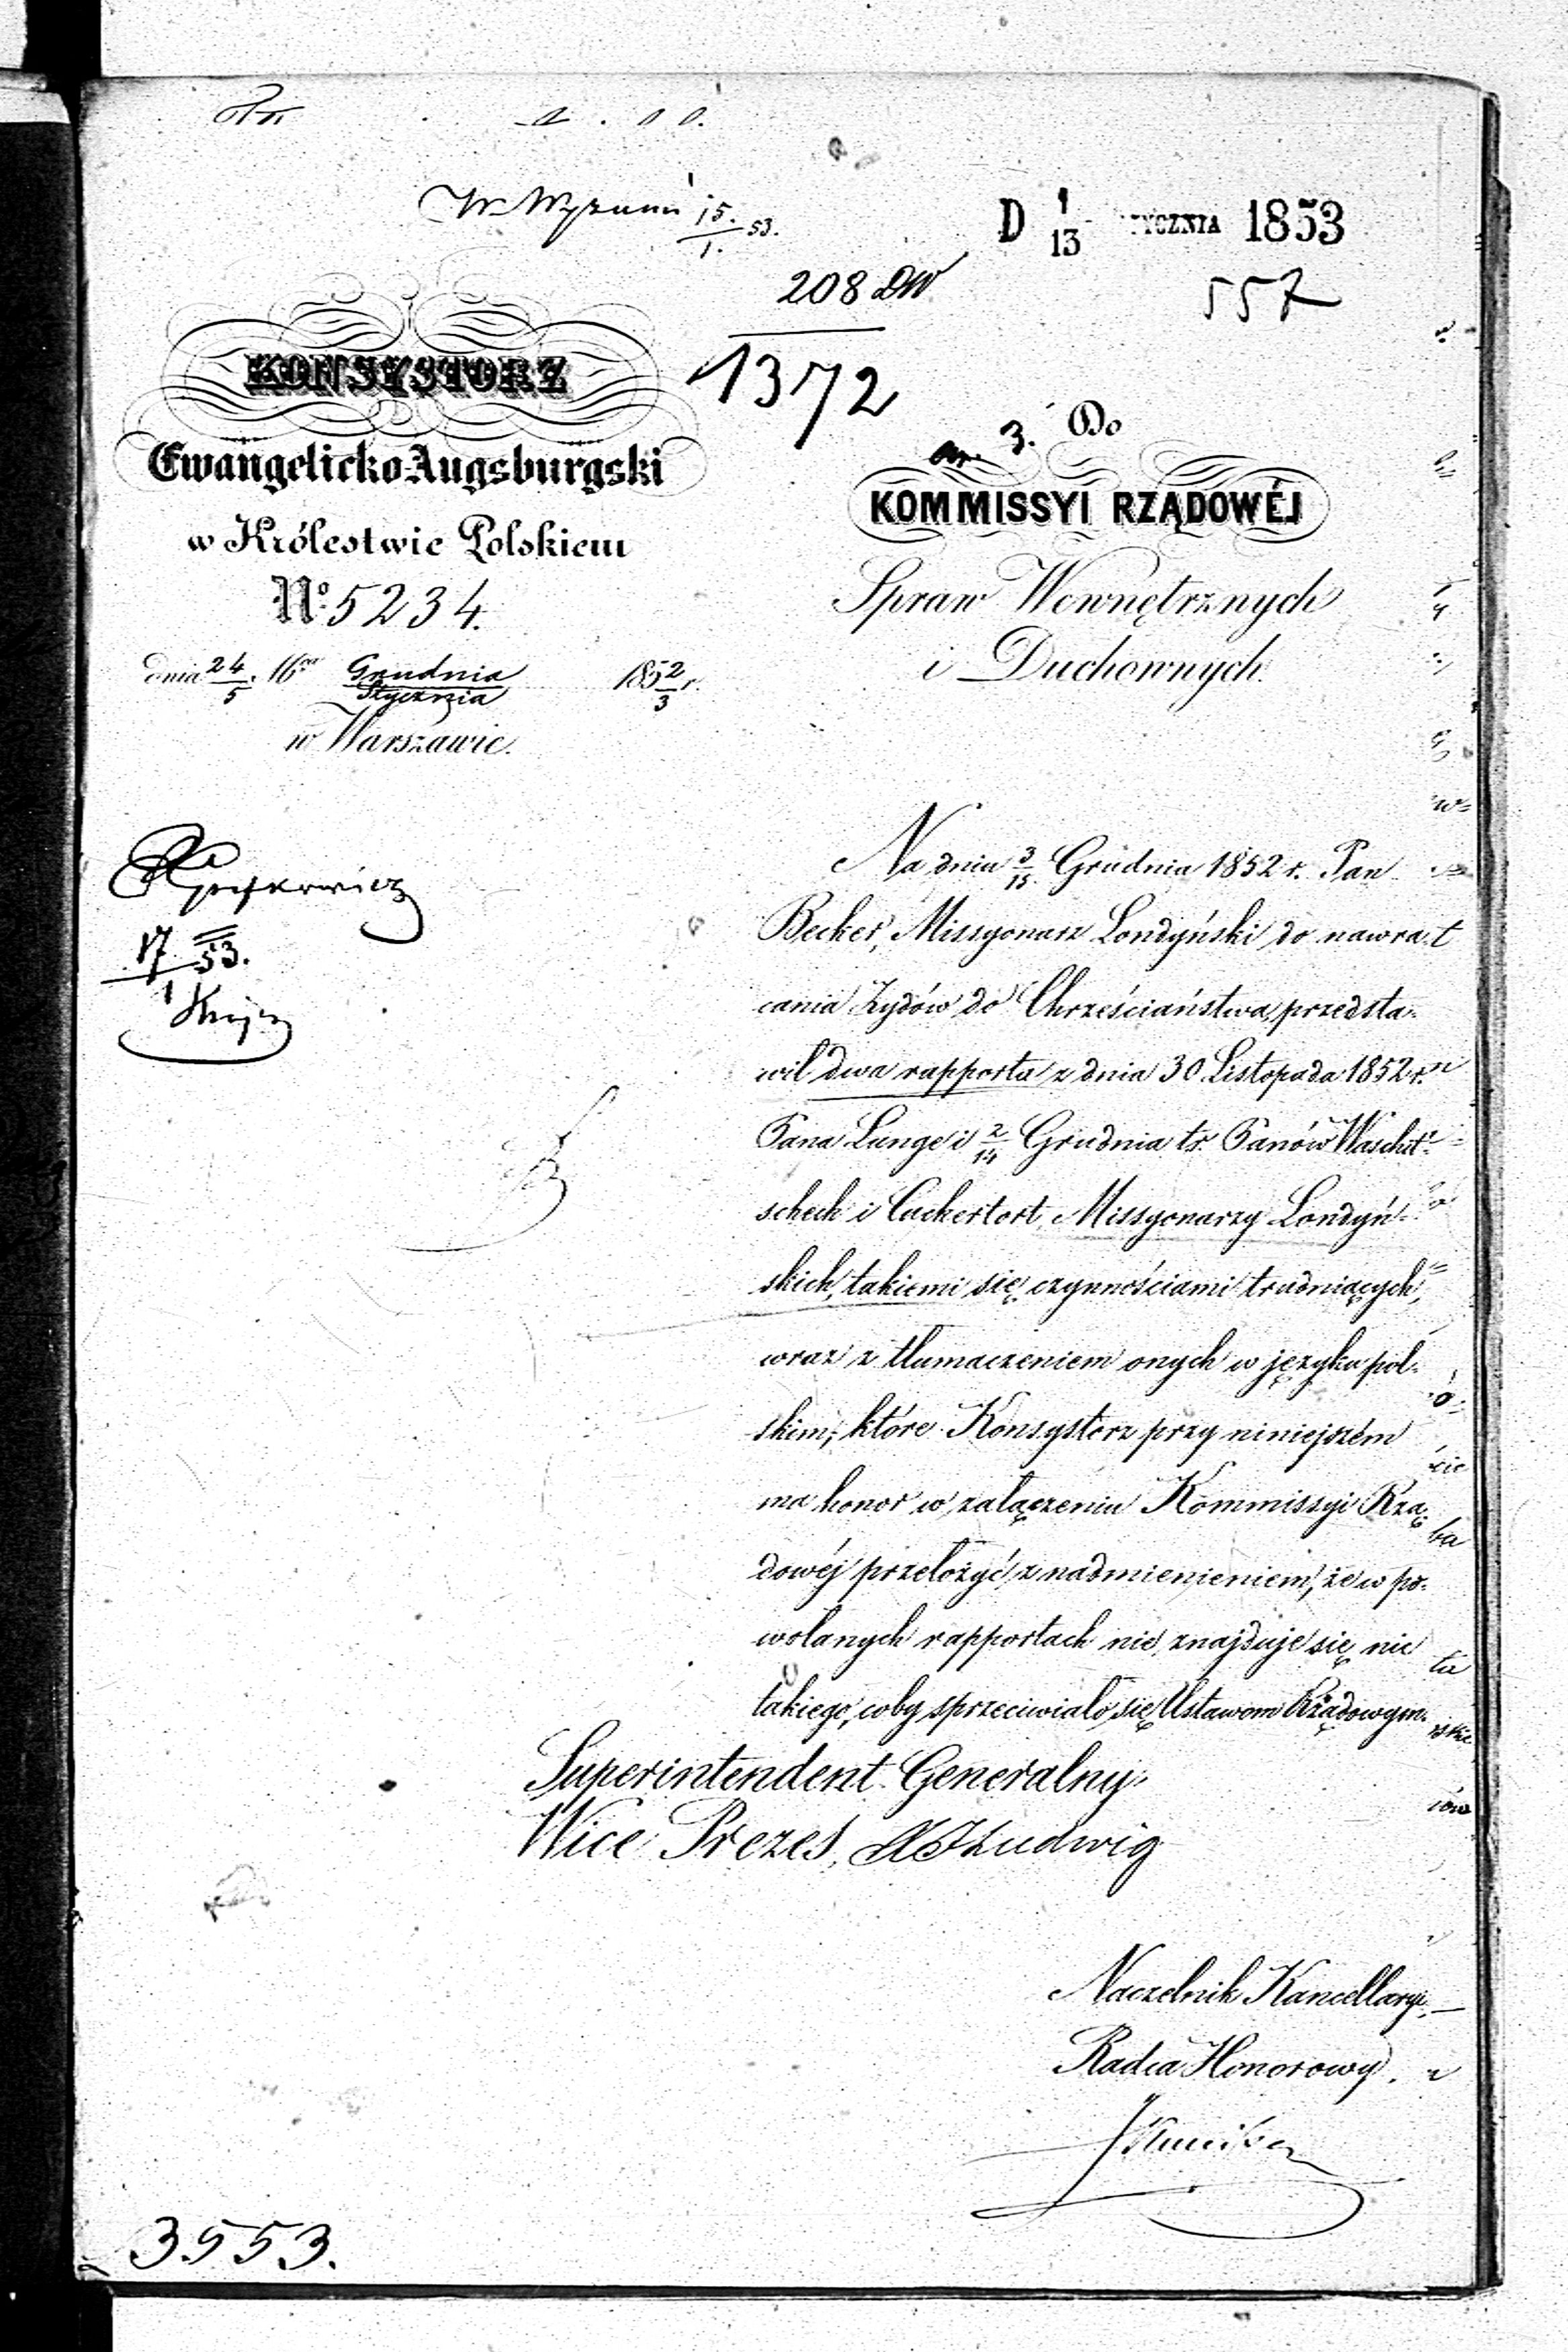 W Wyznań 15./1. 53.
D 1/13 TYCZNIA 1853
208 DW
1372
557
KONSYSTORZ
Ewangelicko-Augsburgski
w Królestwie Polskiem
No. 5234.
dnia 24/5. Grudnia/Stycznia 1852/3 r.
w Warszawie.
3. Do
KOMMISSYI RZĄDOWÉJ
Spraw Wewnętrznych
i Duchownych.
17/1 53.
Na dniu 3/15 Grudnia 1852 r. Pan
Becker, Missyonarz Londyński do nawra-
cania Żydów do Chrześciaństwa, przedsta-
wił dwa rapporta z dnia 30 Listopada 1852 r.
Pana Lange i 2/14 Grudnia tr. Panów Waschit-
scheck i Cuckertort, Missyonarzy Londyń-
skich, takiemi się czynnościami trudniących,
wraz z tłumaczeniem onych w języku pol-
skim; które Konsystorz przy niniejszém
ma honor w załączeniu Kommissyi Rzą-
dowéj przełożyć z nadmienieniem, że w po-
wołanych rapportach nie znajduje się nic
takiego, coby sprzeciwiało się Ustawom Rządowym.
Superintendent Generalny
Wice Prezes, Ludwig
Naczelnik Kancellaryi,
Radca Honorowy.
3953.